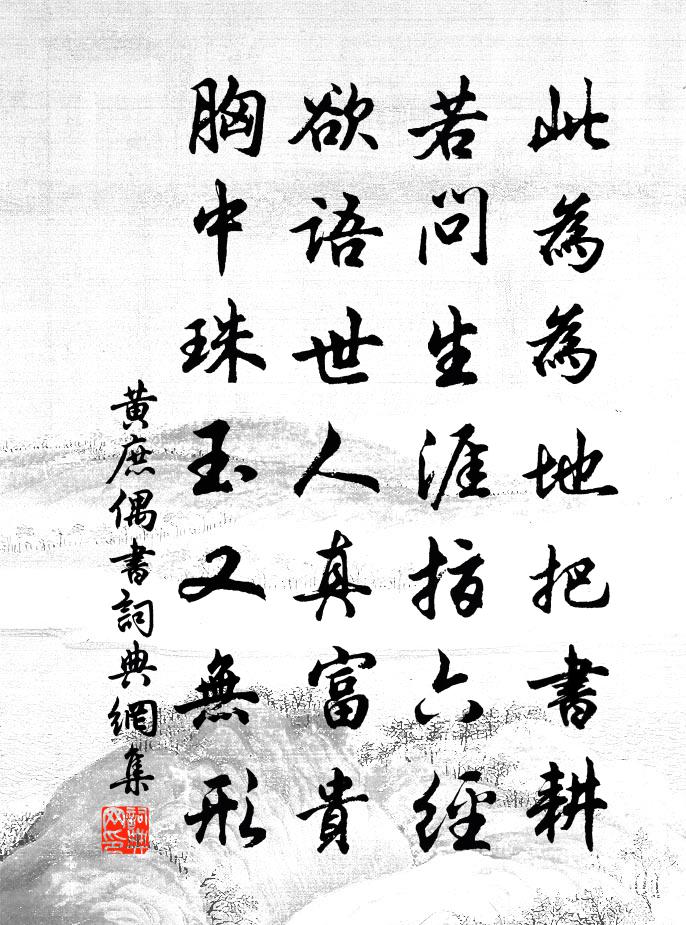 此為為地把書耕
若問生涯指六經
欲語世人真富貴
胸中珠玉又無形
黃庶偶書詞典網集
詞典网印